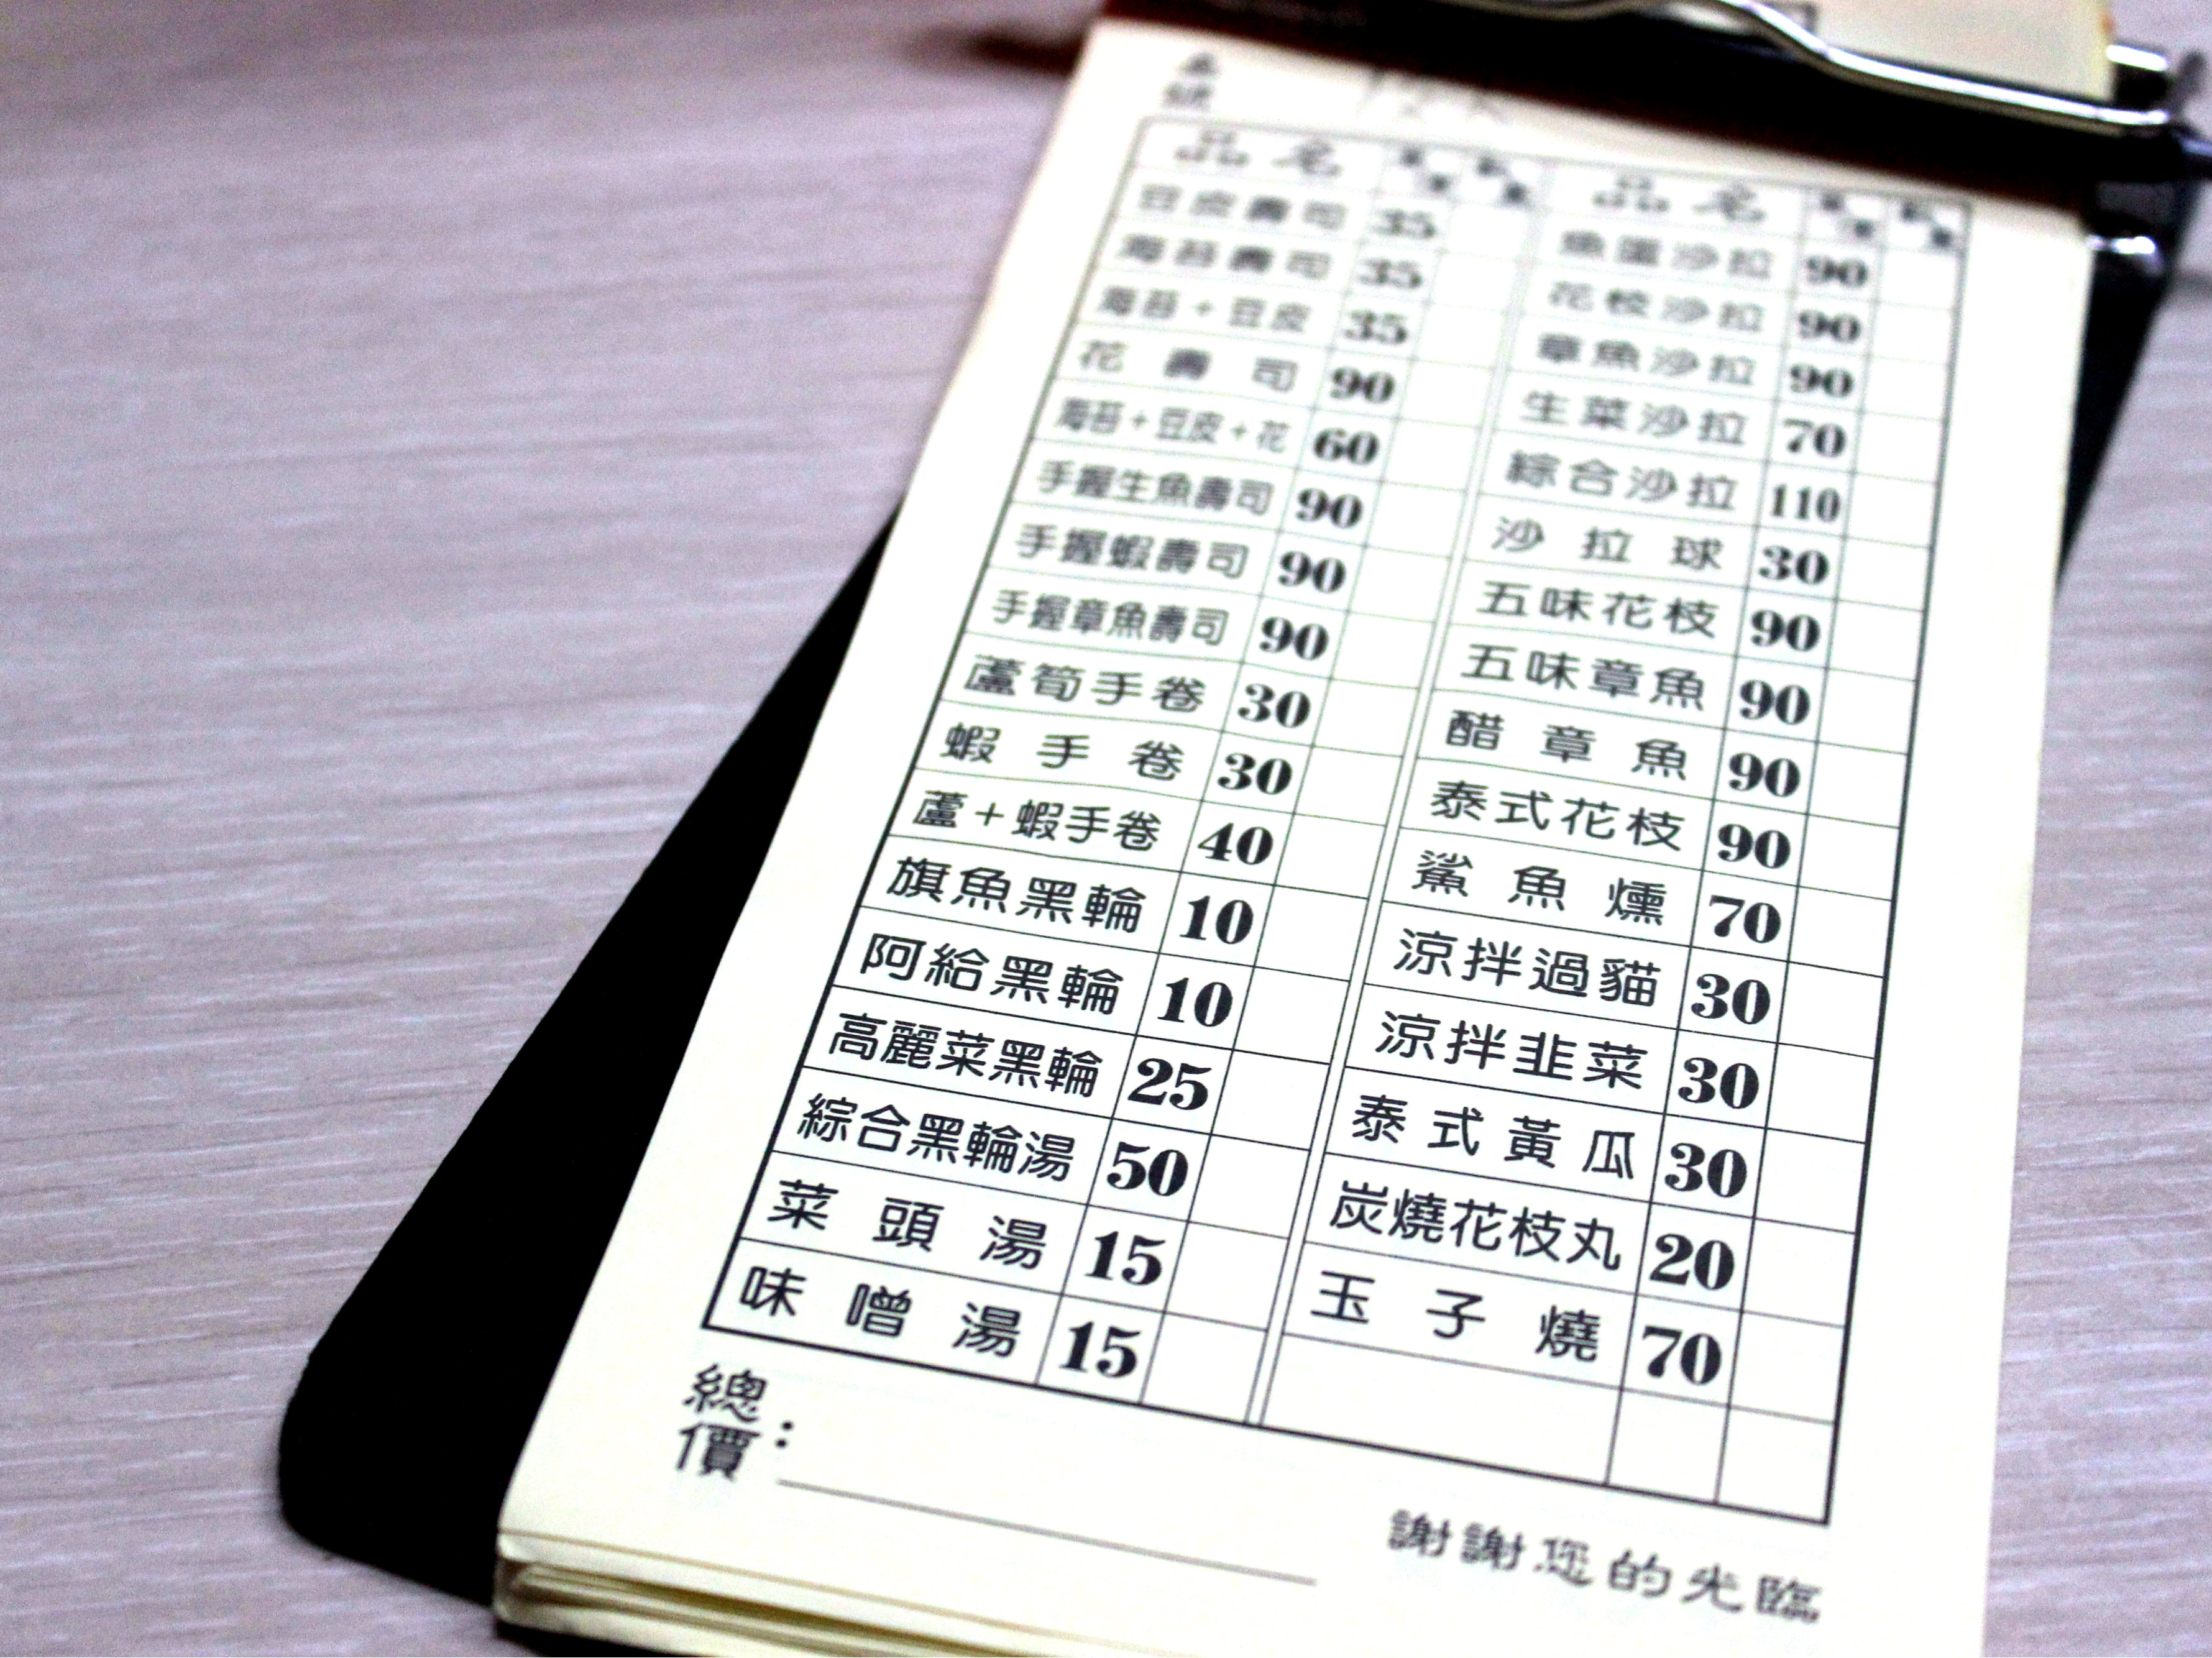 品名
豆皮壽司 35
海苔壽司 35
海苔+豆皮 35
花壽司 90
海苔+豆皮+花 60
手握生魚壽司 90
手握蝦壽司 90
手握章魚壽司 90
蘆筍手卷 30
蝦手卷 30
蘆+蝦手卷 40
旗魚黑輪 10
阿給黑輪 10
高麗菜黑輪 25
綜合黑輪湯 50
菜頭湯 15
味噌湯 15
品名
魚蛋沙拉 90
花枝沙拉 90
章魚沙拉 90
生菜沙拉 70
綜合沙拉 110
沙拉球 30
五味花枝 90
五味章魚 90
醋章魚 90
泰式花枝 90
鯊魚燻 70
涼拌過貓 30
涼拌韭菜 30
泰式黃瓜 30
炭燒花枝丸 20
玉子燒 70
總價：
謝謝您的光臨